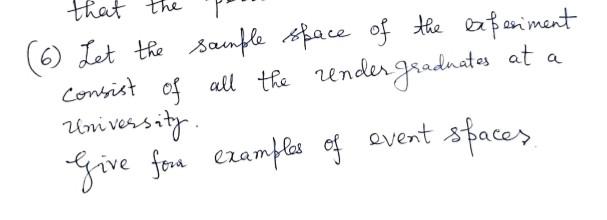 that the
(6) Let the sample space of the experiment
consist of all the undergraduates at a
University.
Give four examples of event spaces.